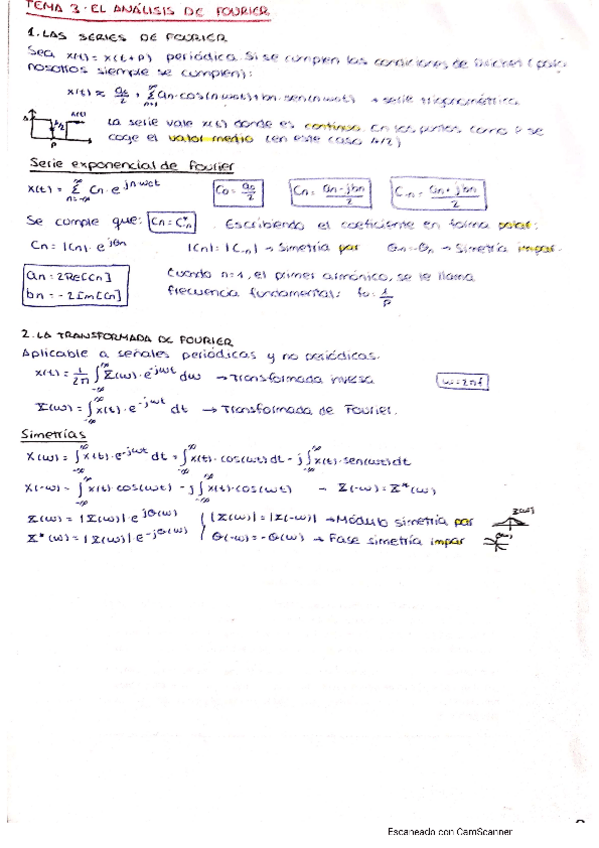 TEMA 3. EL ANÁLISIS DE FOURIER
1. LAS SERIES DE FOURIER
Sea x(t) = x(t+P) periódica. Si se cumplen las condiciones de (para
nosotros siempre se cumplen):
x(t) ≈ a₀/2 + Σ an·cos(nω₀t) + bn·sen(nω₀t) → serie trigonométrica
La serie vale x(t) donde es continua. En los puntos como P se
coge el valor medio (en este caso A/2)
Serie exponencial de Fourier
x(t) = Σ Cn·e^jnω₀t   C₀ = a₀/2   Cn = (an - jbn)/2   C-n = (an + jbn)/2
Se cumple que: Cn = C*-n. Escribiendo el coeficiente en forma polar:
Cn = |Cn|·e^jθn   |Cn| = |C-n| → Simetría par   → Simetría impar.
an = 2Re[Cn]   Cuando n=1, el primer armónico, se le llama
bn = -2Im[Cn]   frecuencia fundamental: f₀ = 1/P
2. LA TRANSFORMADA DE FOURIER
Aplicable a señales periódicas y no periódicas.
x(t) = 1/2π ∫ X(ω)·e^jωt dω → Transformada inversa   ω = 2πf
X(ω) = ∫ x(t)·e^-jωt dt → Transformada de Fourier.
Simetrías
X(ω) = ∫ x(t)·e^-jωt dt = ∫ x(t)·cos(ωt)dt - j∫ x(t)·sen(ωt)dt
X(-ω) = ∫ x(t)·cos(ωt) - j∫ x(t)·cos(ωt) → X(-ω) = X*(ω)
X(ω) = |X(ω)| e^jθ(ω)   |X(ω)| = |X(-ω)| → Módulo simetría par
X*(ω) = |X(ω)| e^-jθ(ω)   θ(-ω) = -θ(ω) → Fase simetría impar
Escaneado con CamScanner